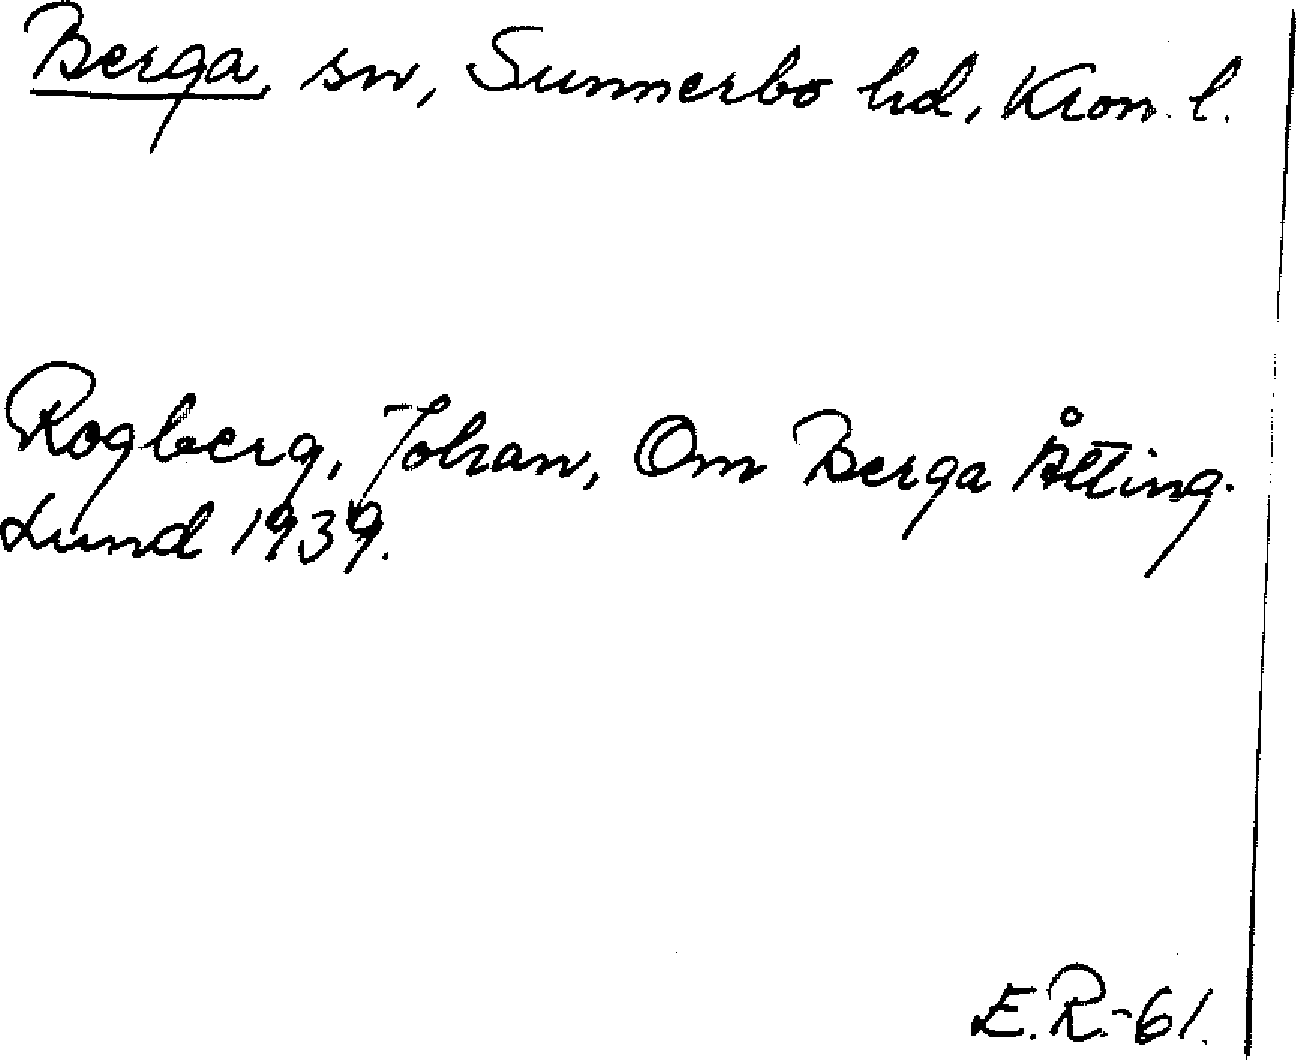 Berga, sn, Sunnerbo hd, Kron. l.
Rogberg, Johan, Om Berga Ålting.
Lund 1939.
E.R.-61.